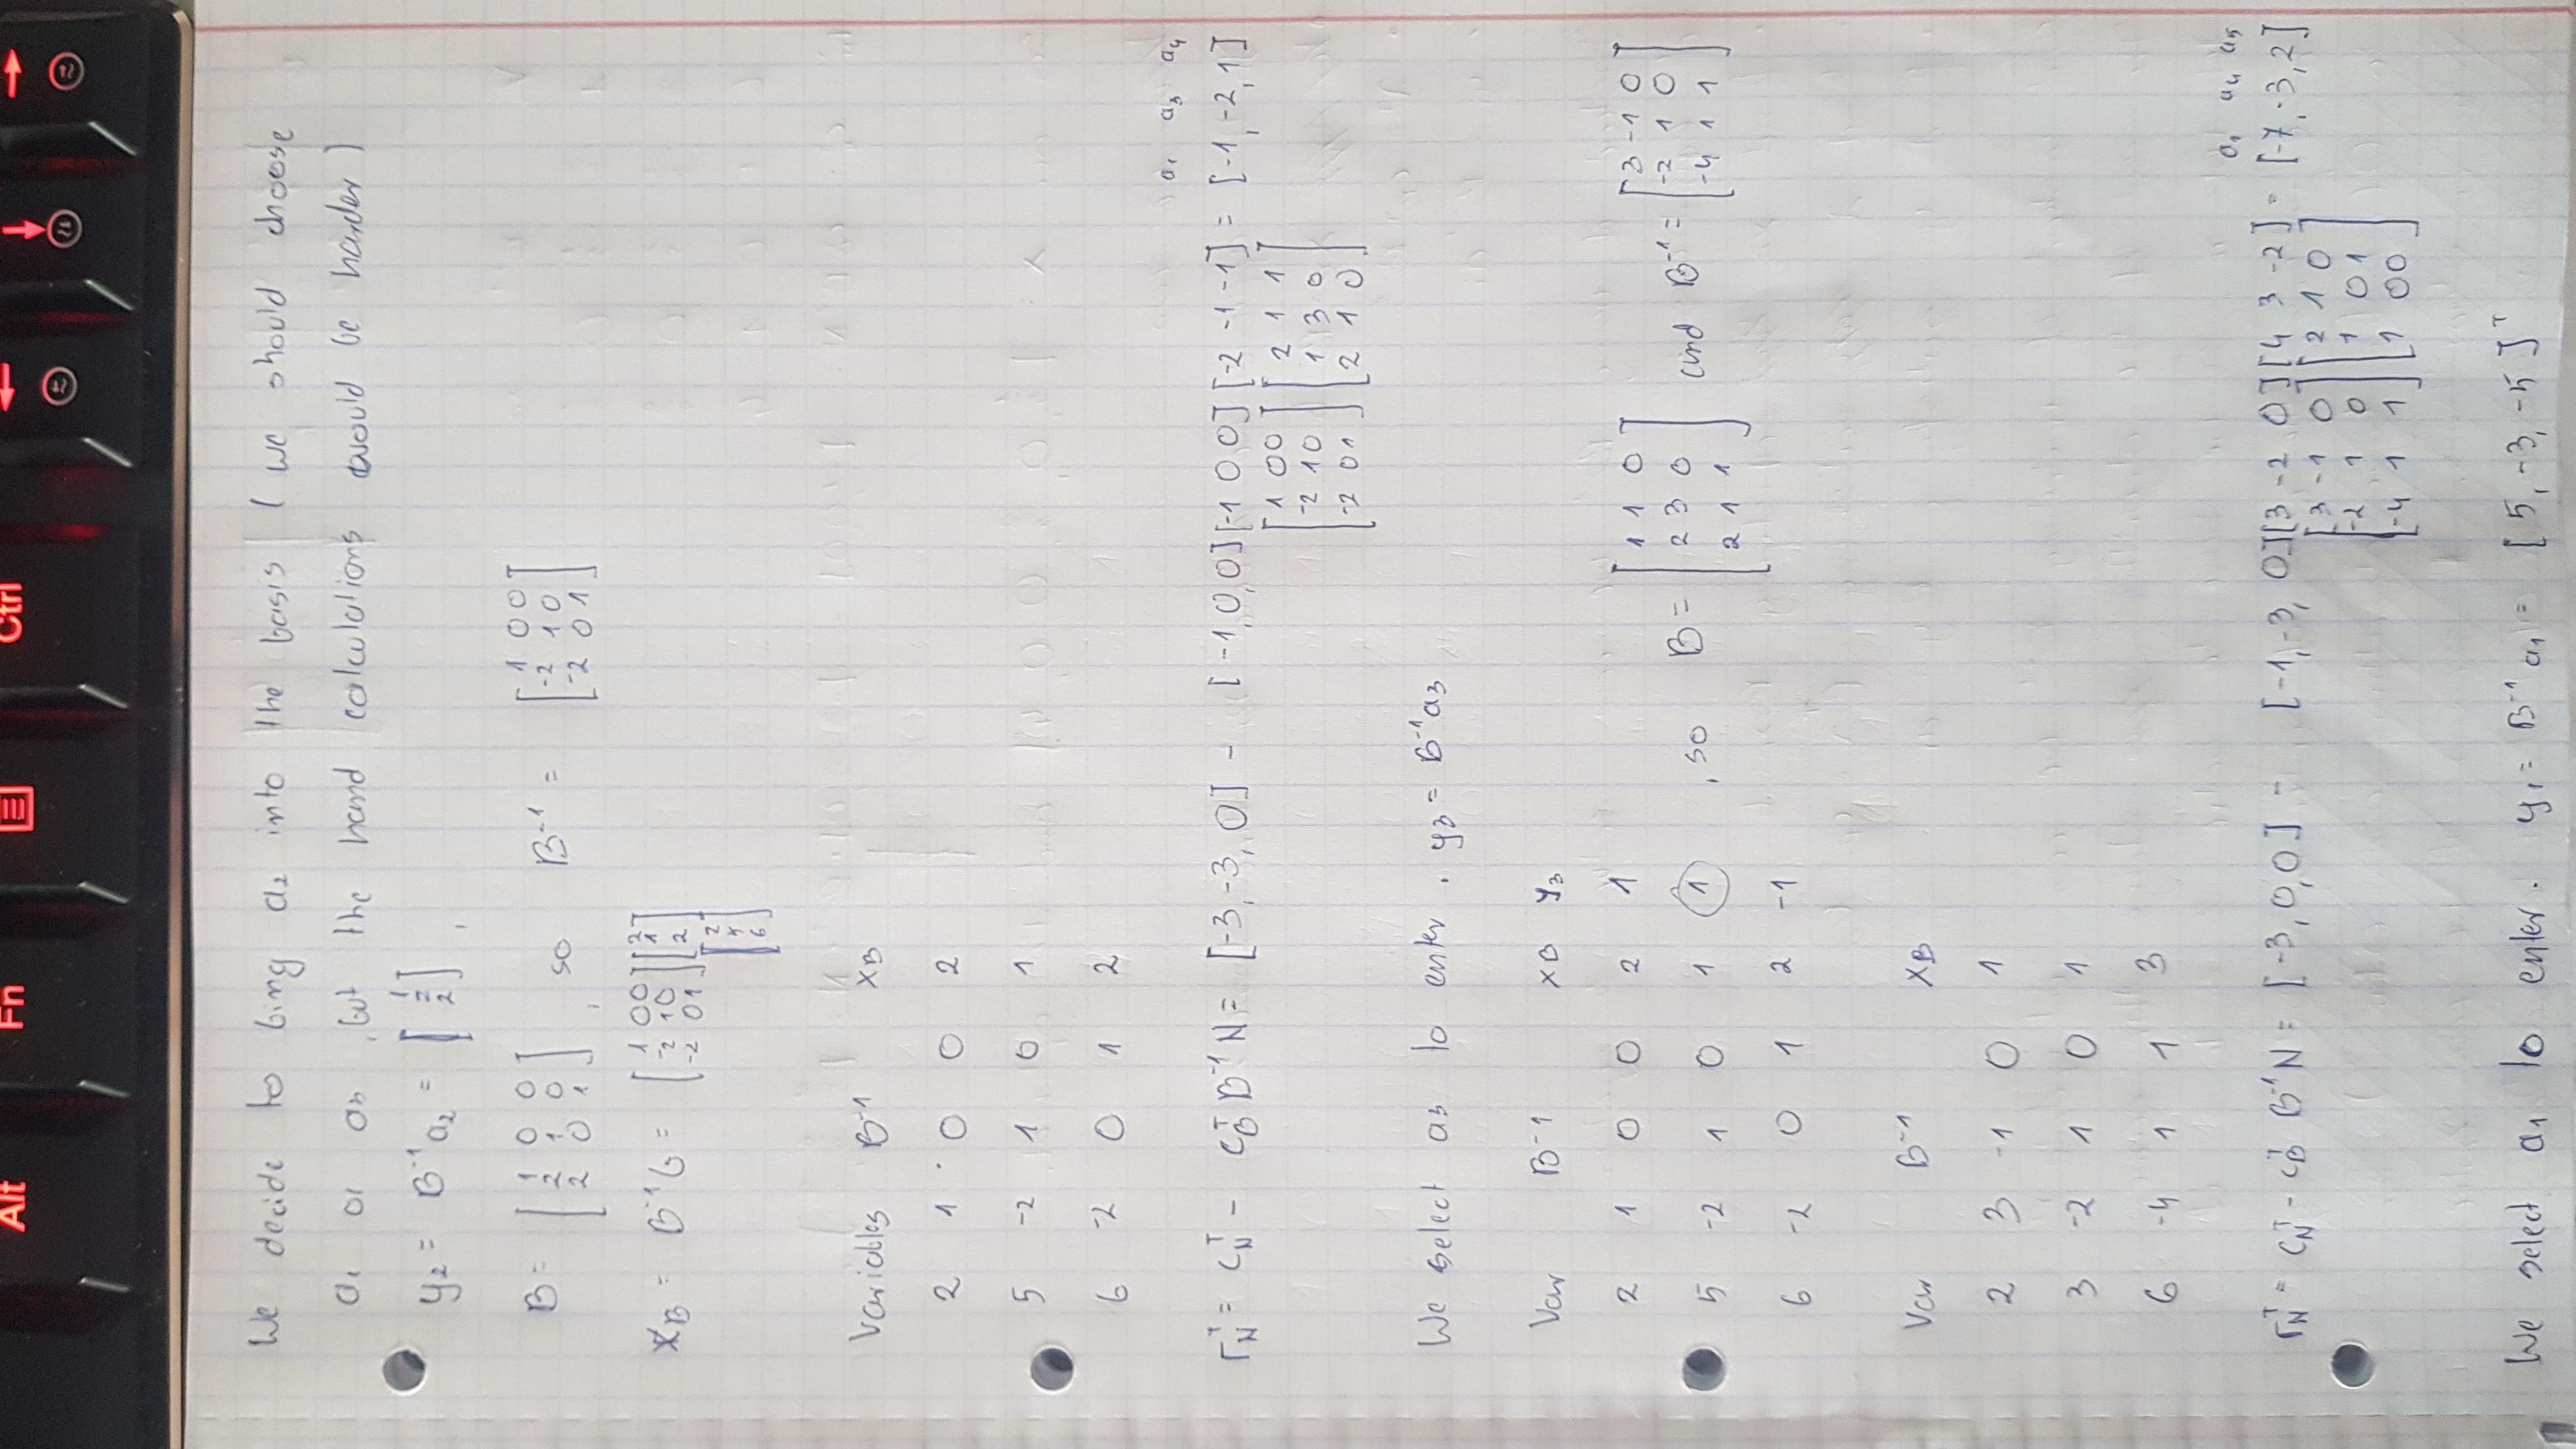 Alt Fn Ctrl
We decide to bing a2 into the basis ( we should choose
a1 or a3 , but the hand calculations would be harder )
y2 = B^-1 a2 = [ 1 2 2 ] ,
B = [ 1 0 0
2 1 0
2 0 1 ] , so B^-1 = [ 1 0 0
-2 1 0
-2 0 1 ]
xB = B^-1 b = [ 1 0 0
-2 1 0
-2 0 1 ] [ 2
1
2 ]
[ 2
5
6 ]
Variables B^-1 xB
2 1 0 0 2
5 -2 1 0 1
6 -2 0 1 2
a1 a3 a4
rN^T = cN^T - cB^T B^-1 N = [-3, -3, 0] - [-1, 0, 0] [-1 0 0] [-2 -1 -1] = [-1, -2, 1]
[ 1 0 0
-2 1 0
-2 0 1 ] [ 2 1 1
1 3 0
2 1 0 ]
We select a3 to enter . y3 = B^-1 a3
Var B^-1 xB y3
2 1 0 0 2 1
5 -2 1 0 1 1 , so B = [ 1 1 0
2 3 0
2 1 1 ] and B^-1 = [ 3 -1 0
-2 1 0
-4 1 1 ]
6 -2 0 1 2 -1
Var B^-1 xB
2 3 -1 0 1
3 -2 1 0 1
6 -4 1 1 3
a1 a4 a5
rN^T = cN^T - cB^T B^-1 N = [-3, 0, 0] - [-1, -3, 0] [3 -2 0] [4 3 -2] = [-7, -3, 2]
[ 3 -1 0
-2 1 0
-4 1 1 ] [ 2 1 0
1 0 1
1 0 0 ]
We select a1 to enter . y1 = B^-1 a1 = [ 5, -3, -5 ]^T